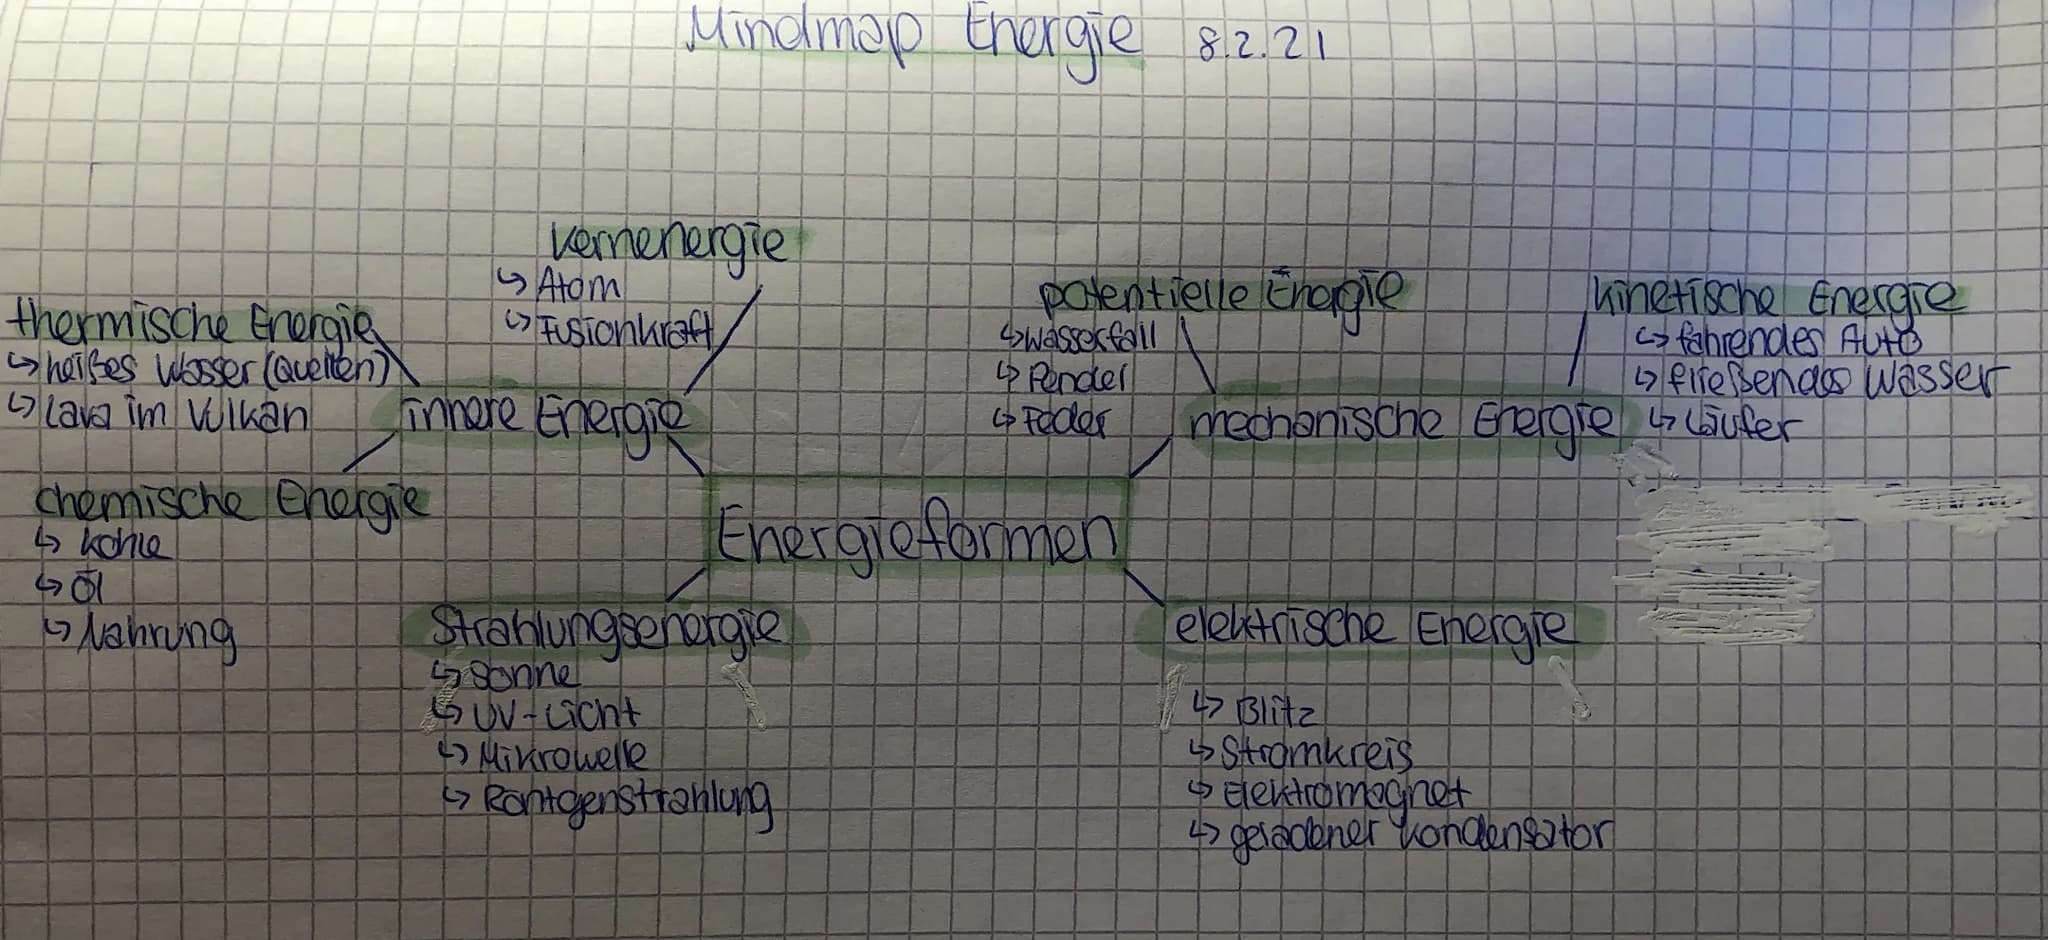 Mindmap Energie 8.2.21
Kernenergie
↳ Atom
↳ Fusionkraft
thermische Energie
↳ heißes Wasser (Quellen)
↳ Lava im Vulkan
innere Energie
chemische Energie
↳ Kohle
↳ Öl
↳ Nahrung
potentielle Energie
↳ Wasserfall
↳ Pendel
↳ Feder
kinetische Energie
↳ fahrendes Auto
↳ fließendes Wasser
↳ Läufer
mechanische Energie
Energieformen
Strahlungsenergie
↳ Sonne
↳ UV-Licht
↳ Mikrowelle
↳ Röntgenstrahlung
elektrische Energie
↳ Blitz
↳ Stromkreis
↳ Elektromagnet
↳ geladener Kondensator